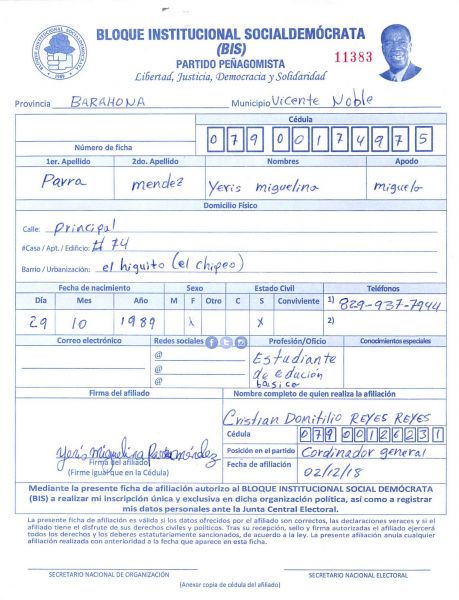 BLOQUE INSTITUCIONAL SOCIALDEMÓCRATA
(BIS)
PARTIDO PEÑAGOMISTA
Libertad, Justicia, Democracia y Solidaridad
11383
Provincia BARAHONA Municipio Vicente Noble
Cédula
Número de ficha 0 7 9 0 0 1 7 4 9 7 5
1er. Apellido 2do. Apellido Nombres Apodo
Parra mendez Yeris miguelina miguela
Domicilio Físico
Calle: principal
#Casa / Apt. / Edificio: # 74
Barrio / Urbanización: el higuito (el chipeo)
Fecha de nacimiento Sexo Estado Civil Teléfonos
Día Mes Año M F Otro C S Conviviente 1) 829-937-7944
29 10 1989 X X 2)
Correo electrónico Redes sociales Profesión/Oficio Conocimientos especiales
@ Estudiante
@ de edución
@ básico
Firma del afiliado Nombre completo de quien realiza la afiliación
Cristian Domitilio REYES REYES
Cédula 0 7 9 0 0 1 2 6 2 3 1
Yeris Miguelina Parra Méndez
Firma del afiliado)
(Firme igual que en la Cédula)
Posición en el partido Cordinador general
Fecha de afiliación 02/12/18
Mediante la presente ficha de afiliación autorizo al BLOQUE INSTITUCIONAL SOCIAL DEMÓCRATA
(BIS) a realizar mi inscripción única y exclusiva en dicha organización política, así como a registrar
mis datos personales ante la Junta Central Electoral.
La presente ficha de afiliación es válido si los datos ofrecidos por el afiliado son correctos, las declaraciones veraces y si el
afiliado tiene el disfrute de sus derechos civiles y políticos. Tras su recepción, sello y firma autorizadas el afiliado ejercerá
todos los derechos y los deberes estatutariamente sancionados, de acuerdo a la ley. La presente afiliación anula cualquier
afiliación realizada con anterioridad a la fecha que aparece en esta ficha.
SECRETARIO NACIONAL DE ORGANIZACIÓN SECRETARIO NACIONAL ELECTORAL
(Anexar copia de cédula del afiliado)